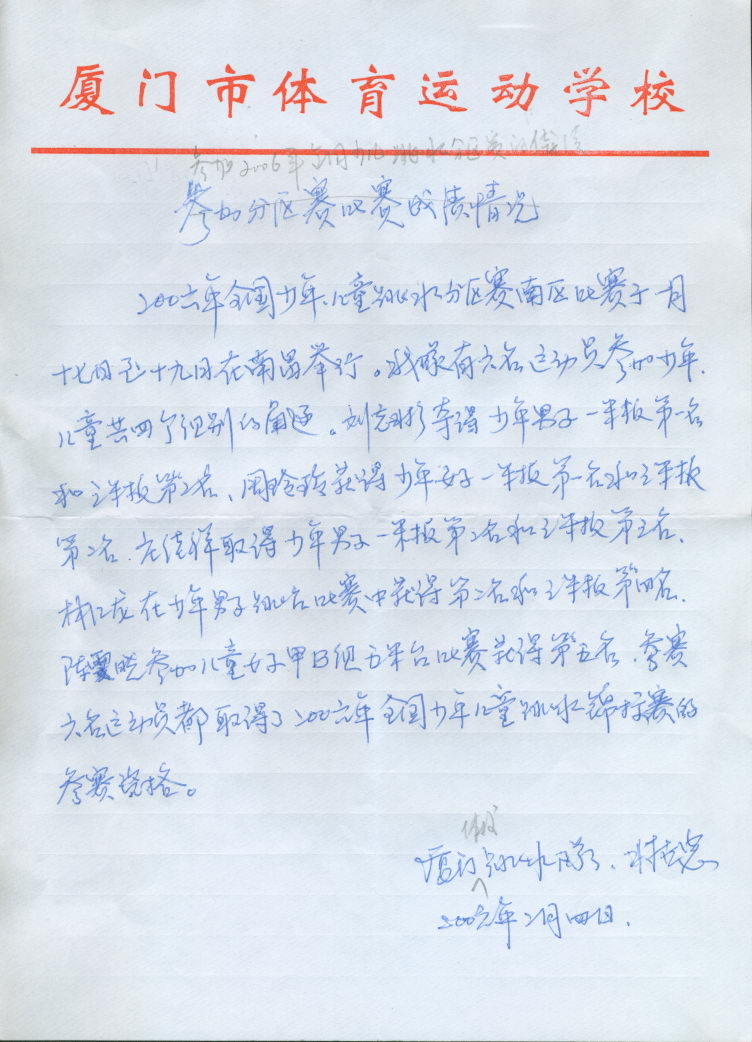 厦门市体育运动学校
参加2006年 月少儿跳水分区赛
参加分区赛比赛成绩情况
二00六年全国少年、儿童跳水分区赛南区比赛于一月
十七日至十九日在南昌举行。我队有六名运动员参加少年、
儿童共四个组别的角逐。刘 彬夺得少年男子一米板第一名
和三米板第二名、周玲玲获得少年女子一米板第一名和三米板
第二名、庄佳祥取得少年男子一米板第二名和三米板第五名、
林仁龙在少年男子跳台比赛中获得第二名和三米板第四名、
陈 晓参加儿童女子甲B组五米台比赛获得第五名、参赛
六名运动员都取得了二00六年全国少年儿童跳水锦标赛的
参赛资格。
体校
厦门跳水队、林
二00六年二月四日.